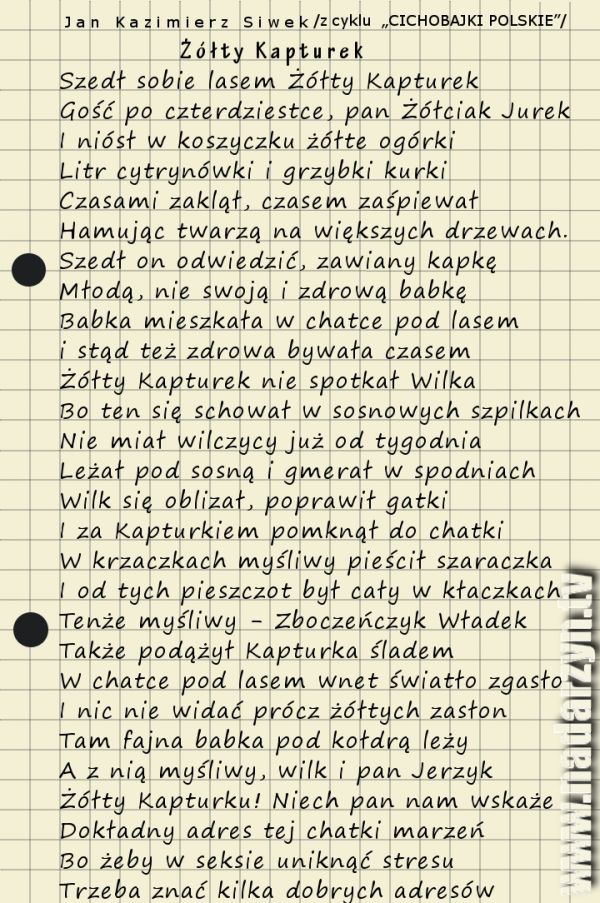 Jan Kazimierz Siwek /z cyklu „CICHOBAJKI POLSKIE”/
Żółty Kapturek
Szedł sobie lasem Żółty Kapturek
Gość po czterdziestce, pan Żółciak Jurek
I niósł w koszyczku żółte ogórki
Litr cytrynówki i grzybki kurki
Czasami zaklął, czasem zaśpiewał
Hamując twarzą na większych drzewach.
Szedł on odwiedzić, zawiany kapkę
Młodą, nie swoją i zdrową babkę
Babka mieszkała w chatce pod lasem
i stąd też zdrowa bywała czasem
Żółty Kapturek nie spotkał Wilka
Bo ten się schował w sosnowych szpilkach
Nie miał wilczycy już od tygodnia
Leżał pod sosną i gmerał w spodniach
Wilk się oblizał, poprawił gatki
I za Kapturkiem pomknął do chatki
W krzaczkach myśliwy pieścił szaraczka
I od tych pieszczot był cały w kłaczkach
Tenże myśliwy – Zboczeńczyk Władek
Także podążył Kapturka śladem
W chatce pod lasem wnet światło zgasło
I nic nie widać prócz żółtych zasłon
Tam fajna babka pod kołdrą leży
A z nią myśliwy, wilk i pan Jerzyk
Żółty Kapturku! Niech pan nam wskaże
Dokładny adres tej chatki marzeń
Bo żeby w seksie uniknąć stresu
Trzeba znać kilka dobrych adresów
www.nadarzyn.tv